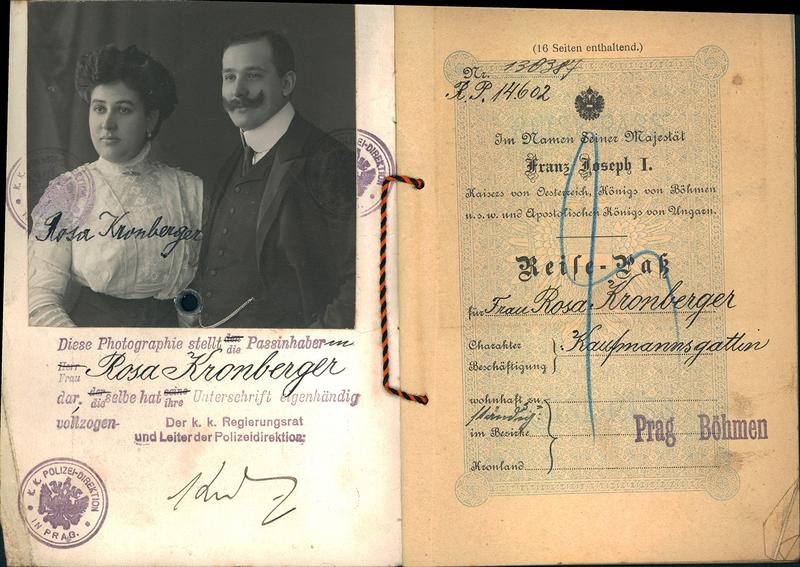 Rosa Kronberger
Diese Photographie stellt der Passinhaber-in
die
Herr
Frau Rosa Kronberger
dar, der selbe hat seine Unterschrift eigenhändig
die ihre
vollzogen-
Der k. k. Regierungsrat
und Leiter der Polizeidirektion:
K. K. POLIZEI-DIREKTION
IN PRAG.
(16 Seiten enthaltend.)
Nr. 138387
R.P. 14.602
Im Namen Seiner Majestät
Franz Joseph I.
Kaisers von Oesterreich, Königs von Böhmen
u. s. w. und Apostolischen Königs von Ungarn.
Reise-Paß
für Frau Rosa Kronberger
Charakter
Beschäftigung
: Kaufmannsgattin
wohnhaft zu
ständig:
im Bezirke
Prag Böhmen
Kronland